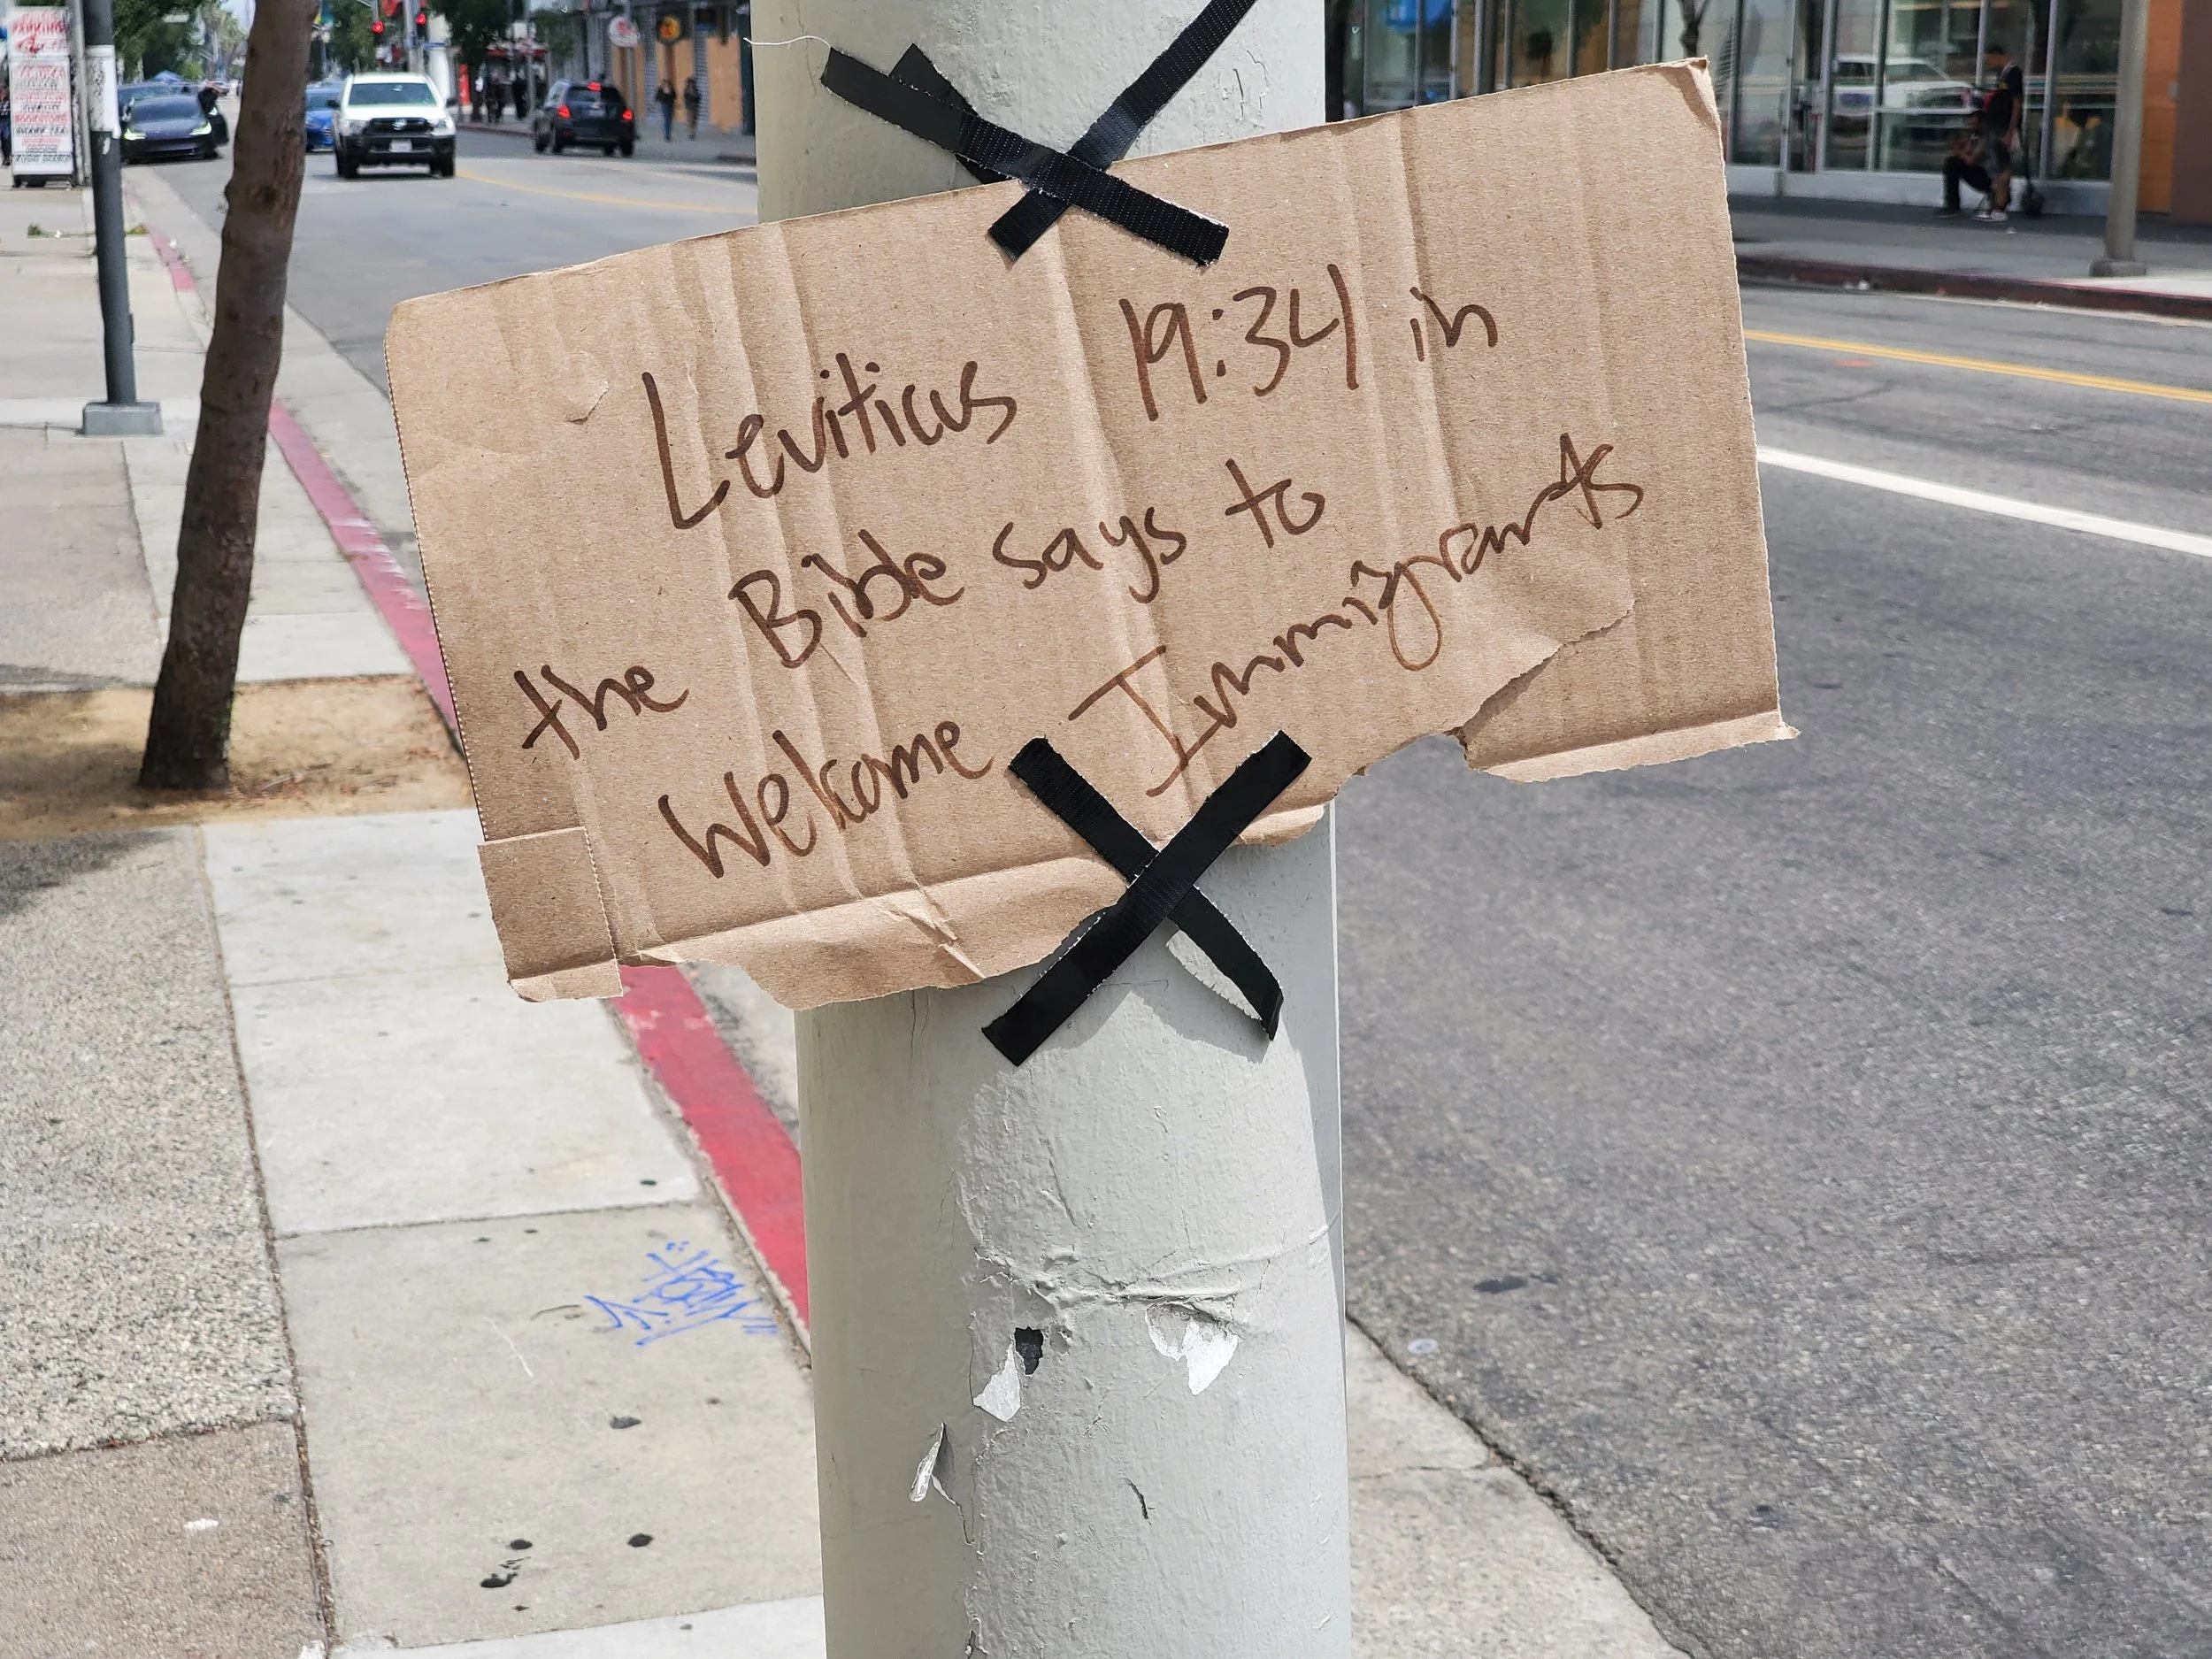 Leviticus 19:34 in
the Bible says to
Welcome Immigrants